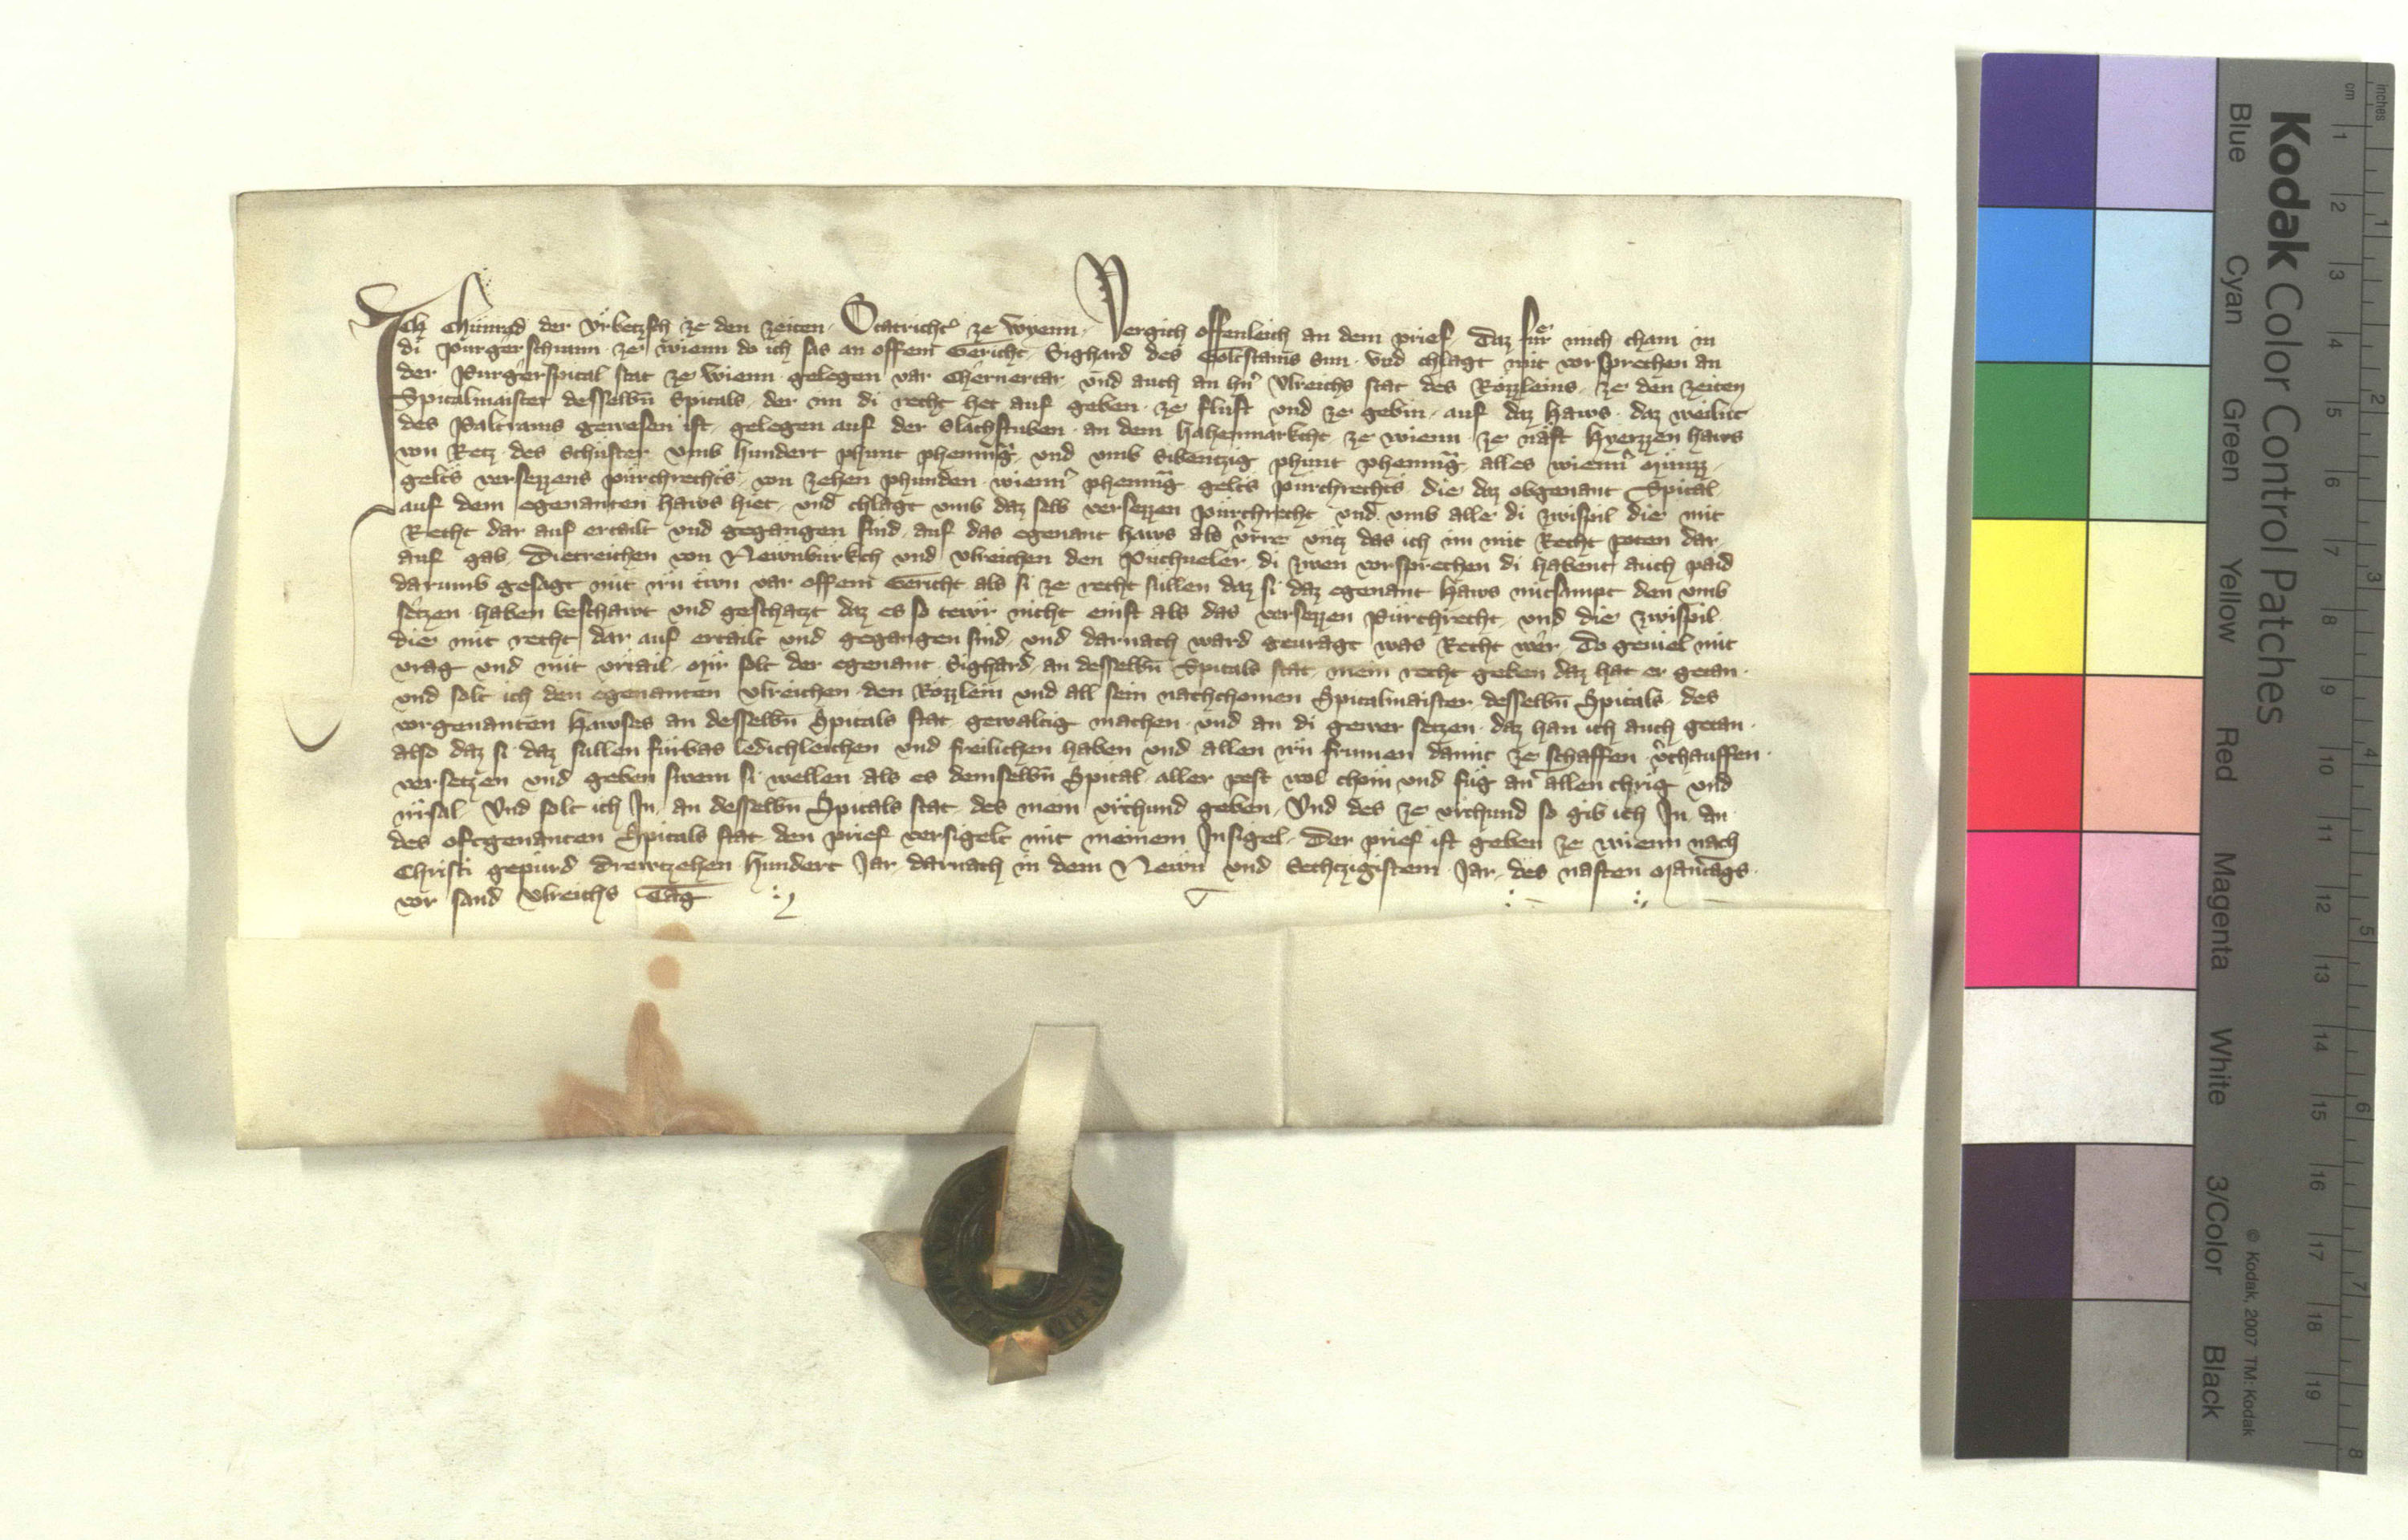 Ich Chunrad der Vrbetzsch ze den zeiten Statricht ze wyenn Vergich offenleich an dem prief Daz für mich cham in
di purgerschrann ze wienn do ich sas an offem Gericht Sighard des Goltstains Sun vnd chlagt mit vorsprechen an
der Purgerspital stat ze Wienn gelegen var Chernertar vnd auch an hn Vlreichs stat des Rözzleins ze den zeiten
Spitalmaister desselbn Spitals der im di recht het auf geben ze flust vnd ze gebin auf daz haws daz weilnt
des Paltrams gewesen ist gelegen auf der Slachstuben an dem hahenmarkcht ze wienn ze näst haws
von Retz des Schuster vmb hundert phunt phennīg vnd vmb Sibentzig phunt phennīg alles wienn münzz
gelts versezzens purchrechts von zehen phunden wienn phennīg gelts purchrechts die daz obgenant Spital
auf dem egenanten haws hiet vnd chlagt vmb daz selb versezzen purchrecht vnd vmb alle di zwispil die mit
Recht dar auf ertailt vnd gegangen sind auf das egenant haws als verre vntz das ich im mit Recht poten dar
auf gab Dietreichen von Newnburkch vnd Vlreichen den di zwen vorsprechen di habent auch paid
darumb gesagt mit irn trwn var offem Gericht als si ze recht sullen daz si daz egenant haws mitsampt den vmb
setzen haben beschawt vnd geschatzt daz es so tewr nicht enist als das versezzen Purchrecht vnd die zwispil
die mit recht dar auf ertailt vnd gegangen sind vnd darnach ward geuragt was Recht wer Do geuiel mit
vrag vnd mit vrtail Mir solt der egenant Sighard an desselbn Spitals stat mein recht geben daz hat er getan
vnd solt ich den egenanten Vlreichen den Rözzlein vnd all sein nachchomen Spitalmaister desselbn Spitals des
vorgenanten Hawses an desselbn Spitals stat gewaltig machen vnd an di gewer setzen daz han ich auch getan
also daz si daz sullen fürbas ledichleichen vnd freilichen haben vnd allen irn frumen damit ze schaffen vchauffen
versetzen vnd geben swem si wellen als es demselbn Spital aller pest wol chöm vnd füg an allen chrig vnd
irrsal Vnd solt ich In an desselbn Spitals stat des mein vrchund geben Vnd des ze vrchund so gib ich In an
des oftgenanten Spitals stat den prief versigelt mit meinem Insigel Der prief ist geben ze wienn nach
Christi gepurd drewtzehen hundert Jar darnach in dem Newn vnd Sechtzigistem Jar des nasten Mantags
vor sand Vlreichs Tag
Kodak Color Control Patches
Blue Cyan Green Yellow Red Magenta White 3/Color Black
© Kodak, 2007 TM: Kodak
cm 1 2 3 4 5 6 7 8 9 10 11 12 13 14 15 16 17 18 19
inches 1 2 3 4 5 6 7 8